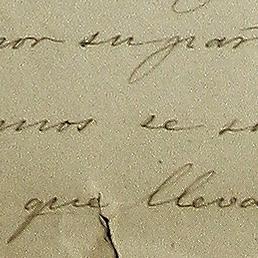 por su par
mos se s
que lleva